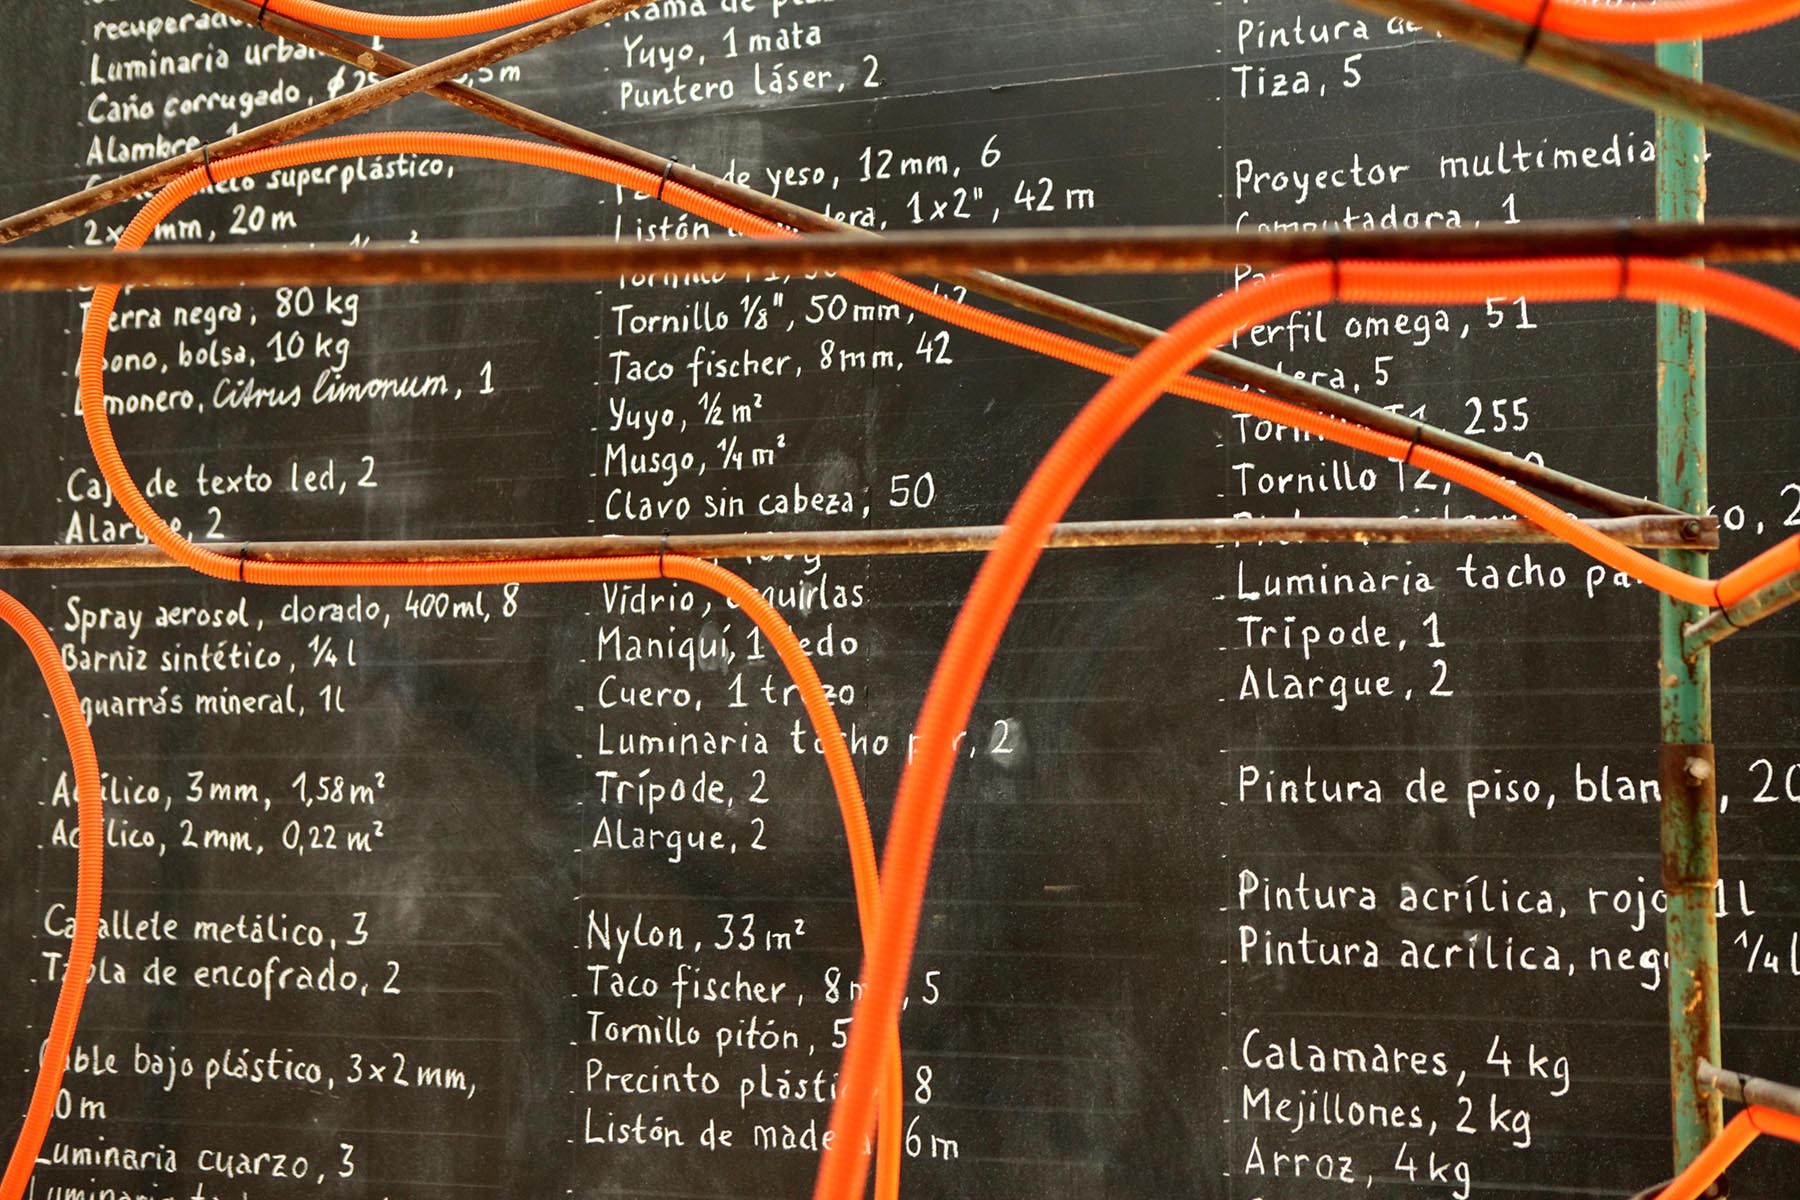 Luminaria
Caño corrugado, 5 m
Alambre,
superplástico,
mm, 20 m
Tierra negra, 80 kg
Abono, bolsa, 10 kg
Limonero, Citrus limonum, 1
Caja de texto led, 2
Alargue, 2
Spray aerosol, dorado, 400 ml, 8
Barniz sintético, ¼ l
Aguarrás mineral, 1 l
Acrílico, 3 mm, 1,58 m²
Acrílico, 2 mm, 0,22 m²
Caballete metálico, 3
Tabla de encofrado, 2
Cable bajo plástico, 3×2 mm,
0 m
Luminaria cuarzo, 3
Luminaria
Rama de
Yuyo, 1 mata
Puntero láser, 2
de yeso, 12 mm, 6
Listón 1×2", 42 m
Tornillo T1,
Tornillo ⅛", 50 mm,
Taco fischer, 8 mm, 42
Yuyo, ½ m²
Musgo, ¼ m²
Clavo sin cabeza, 50
Vidrio, esquirlas
Maniquí, 1 dedo
Cuero, 1 trozo
Luminaria tacho par, 2
Trípode, 2
Alargue, 2
Nylon, 33 m²
Taco fischer, 8 mm, 5
Tornillo pitón, 5
Precinto plástico, 8
Listón de madera, 6 m
Pintura de
Tiza, 5
Proyector multimedia,
Computadora, 1
Perfil omega, 51
5
Tornillo T1, 255
Tornillo T2,
Luminaria tacho par
Trípode, 1
Alargue, 2
Pintura de piso, blanco, 20
Pintura acrílica, rojo, 1 l
Pintura acrílica, negro, ¼ l
Calamares, 4 kg
Mejillones, 2 kg
Arroz, 4 kg